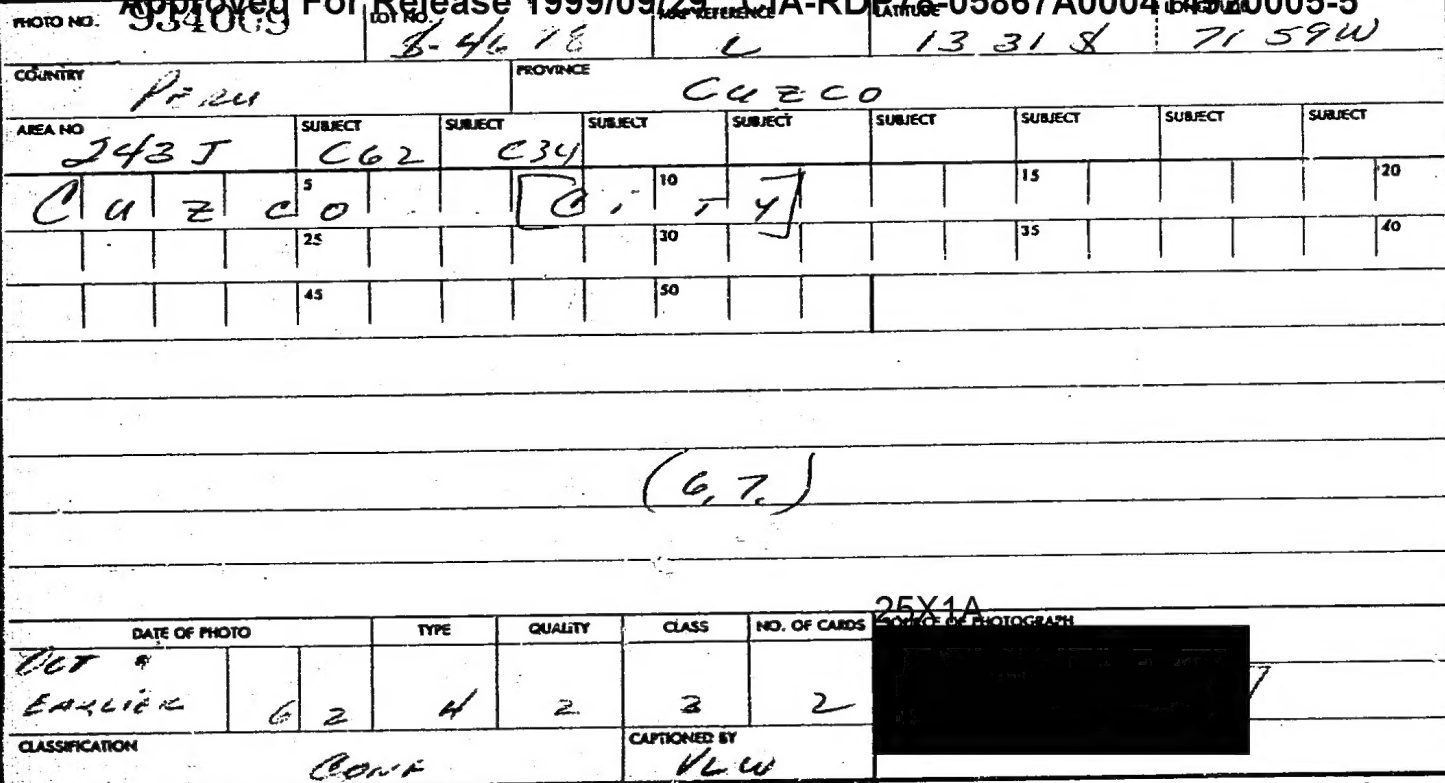 Approved For Release 1999/09/29 CIA-RDP78-05867A000
PHOTO NO. 934069 LOT NO. MAP REFERENCE L LATITUDE 13 31 S 71 59W
COUNTRY Peru PROVINCE Cuzco
AREA NO 243 J SUBJECT C62 SUBJECT C34 SUBJECT SUBJECT SUBJECT SUBJECT SUBJECT SUBJECT
Cuzco [City] 5 10 15 20
25 30 35 40
45 50
(6, 7.)
25X1A
DATE OF PHOTO TYPE QUALITY CLASS NO. OF CARDS SOURCE OF PHOTOGRAPH
OCT
EARLIER 62 4 2 2
CLASSIFICATION CONF CAPTIONED BY VLW